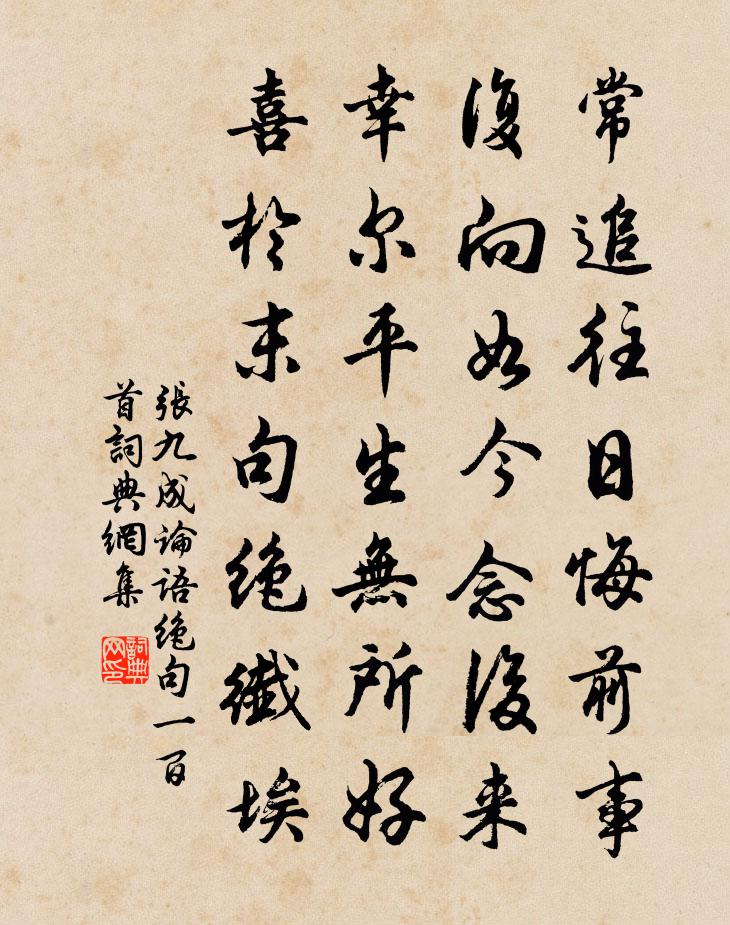 常追往日悔前事
復向如今念後来
幸尔平生無所好
喜於末句絶纖埃
張九成論語絶句一百
首詞典網集
詞典网印